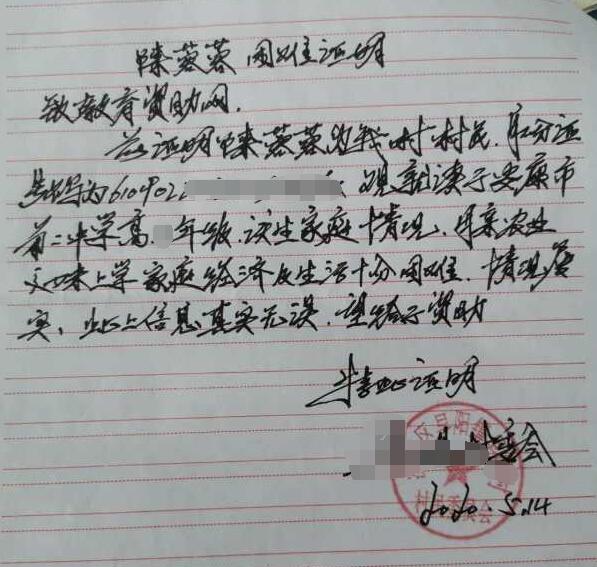 陈蓉蓉困难证明
敬教育资助网.
兹证明陈蓉蓉为我村村民,身份证
号码为610902 现就读于安康市
第二中学高 年级.该生家庭情况,母亲农业
妹上学家庭经济及生活十分困难.情况属
实,以上信息真实无误.望给予资助
特此证明
委会
村民委员会
2020.5.14